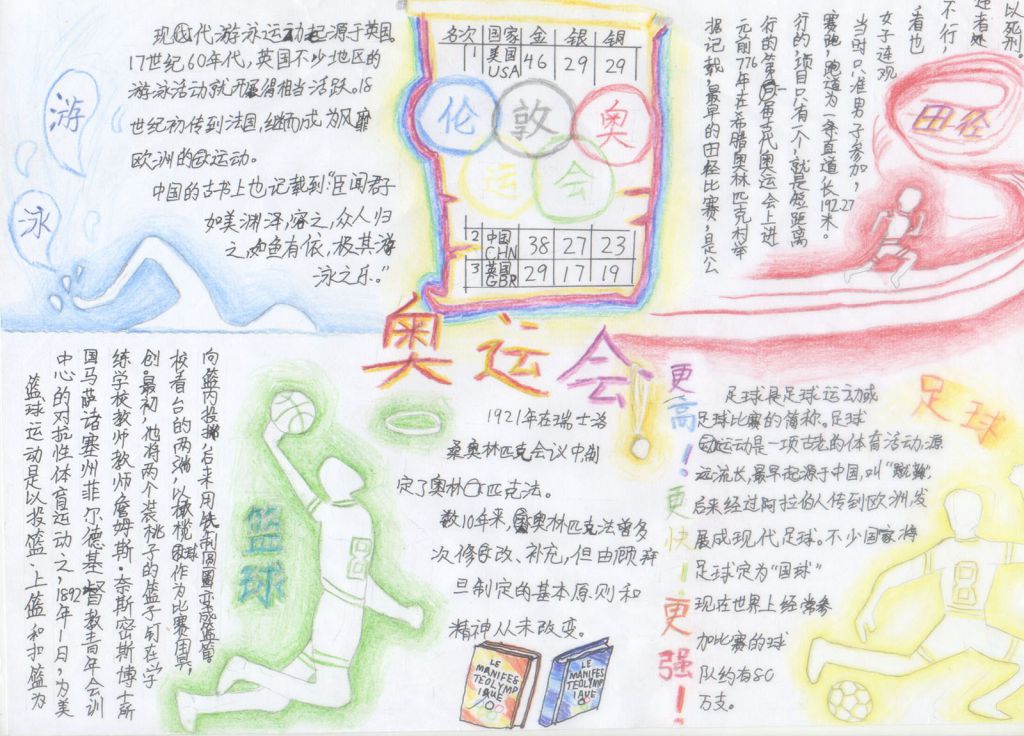 现代游泳运动起源于英国。
17世纪60年代，英国不少地区的
游泳活动就开展得相当活跃。18
世纪初传到法国，继而成为风靡
欧洲的运动。
中国的古书上也记载到"臣闻君子
如美渊泽，容之，众人归
之，如鱼有依，极其游
泳之乐。"
游
泳
名次 国家 金 银 铜
1 美国 USA 46 29 29
伦敦奥
运会
2 中国 CHN 38 27 23
3 英国 GBR 29 17 19
田径
据记载，最早的田径比赛，是公
元前776年在希腊奥林匹克村举
行的第一届古代奥运会上进
行的，项目只有一个，就是短距离
赛跑，跑道为一条直道，长192.27米。
当时只准男子参加，
女子连观
看也
不行，
违者处
以死刑。
奥运会
篮球
篮球运动是以投篮、上篮和扣篮为
中心的对抗性体育运动之一，1892年1日，为美
国马萨诸塞州菲尔德基督教青年会训
练学校教师教师詹姆斯·奈斯密斯博士所
创。最初，他将两个装桃子的篮子钉在学
校看台的两端，以橄榄球作为比赛用具，
向篮内投掷
1921年在瑞士洛
桑奥林匹克会议中制
定了奥林匹克法。
数10年来，奥林匹克法曾多
次修改、补充，但由顾拜
旦制定的基本原则和
精神从未改变。
LE
MANIFES
TEOLYMP
IQUE
LE
MANIFES
TEOLYMP
IQUE
更高！更快！更强！
足球
足球是足球运动或
足球比赛的简称。足球
运动是一项古老的体育活动，源
远流长，最早起源于中国，叫"蹴鞠"，
后来经过阿拉伯人传到欧洲，发
展成现代足球。不少国家将
足球定为"国球"
现在世界上经常参
加比赛的球
队约有80
万支。
8
8